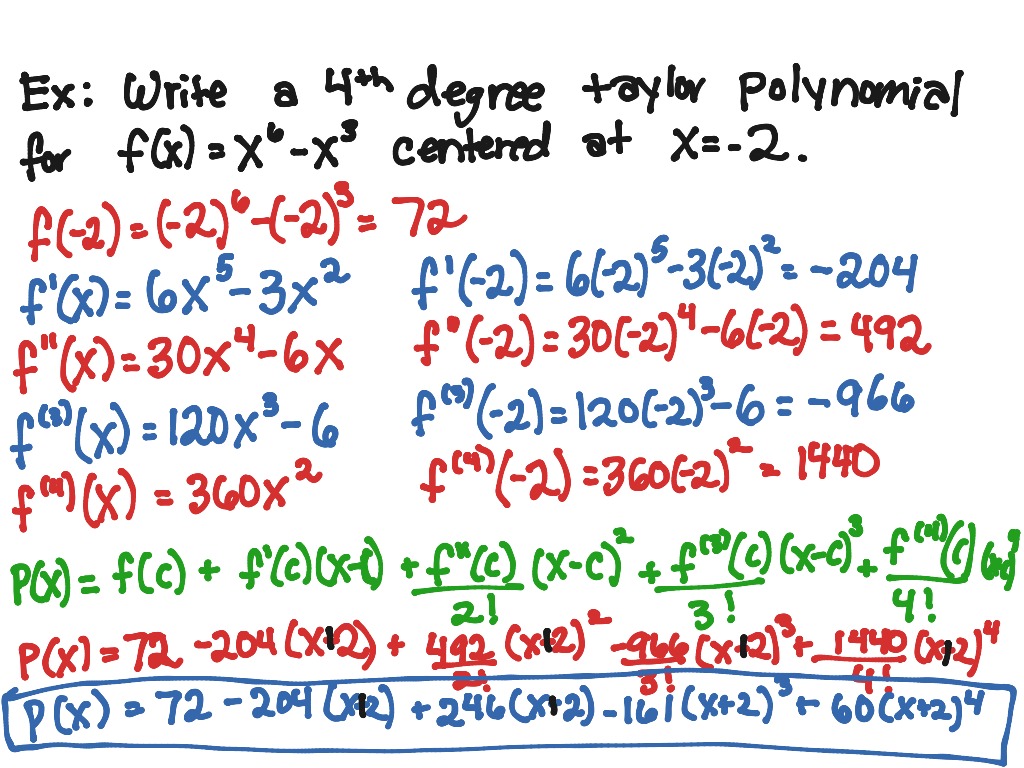 Ex: Write a 4th degree taylor Polynomial
for f(x) = x⁶ - x³ centered at x = -2.
f(-2) = (-2)⁶ - (-2)³ = 72
f'(x) = 6x⁵ - 3x² f'(-2) = 6(-2)⁵ - 3(-2)² = -204
f''(x) = 30x⁴ - 6x f''(-2) = 30(-2)⁴ - 6(-2) = 492
f⁽³⁾(x) = 120x³ - 6 f⁽³⁾(-2) = 120(-2)³ - 6 = -966
f⁽⁴⁾(x) = 360x² f⁽⁴⁾(-2) = 360(-2)² = 1440
P(x) = f(c) + f'(c)(x-c) + f''(c)/2! (x-c)² + f⁽³⁾(c)/3! (x-c)³ + f⁽⁴⁾(c)/4! (x-c)⁴
P(x) = 72 - 204(x+2) + 492/2! (x+2)² - 966/3! (x+2)³ + 1440/4! (x+2)⁴
P(x) = 72 - 204(x+2) + 246(x+2) - 161(x+2)³ + 60(x+2)⁴